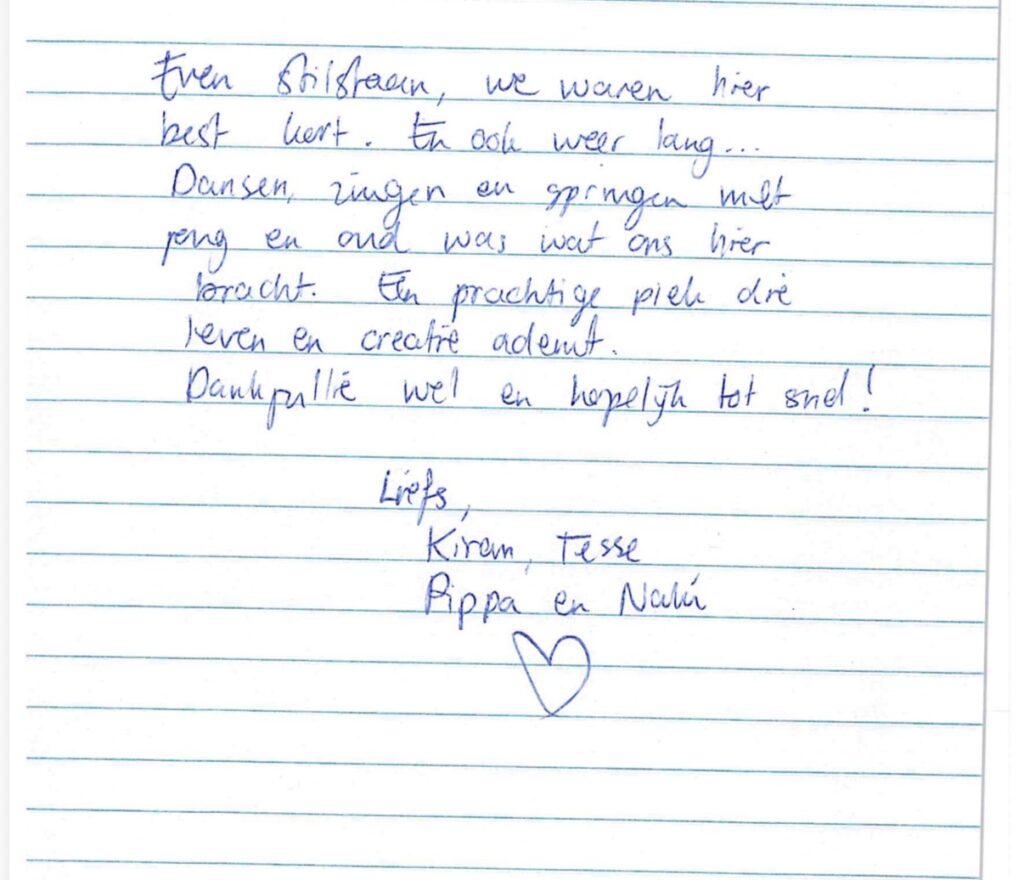 Even stilstaan, we waren hier
best kort. En ook weer lang...
Dansen, zingen en springen met
jong en oud was wat ons hier
bracht. Een prachtige plek die
leven en creatie ademt.
Dankjullie wel en hopelijk tot snel!
Liefs,
Kiran, Tesse
Pippa en